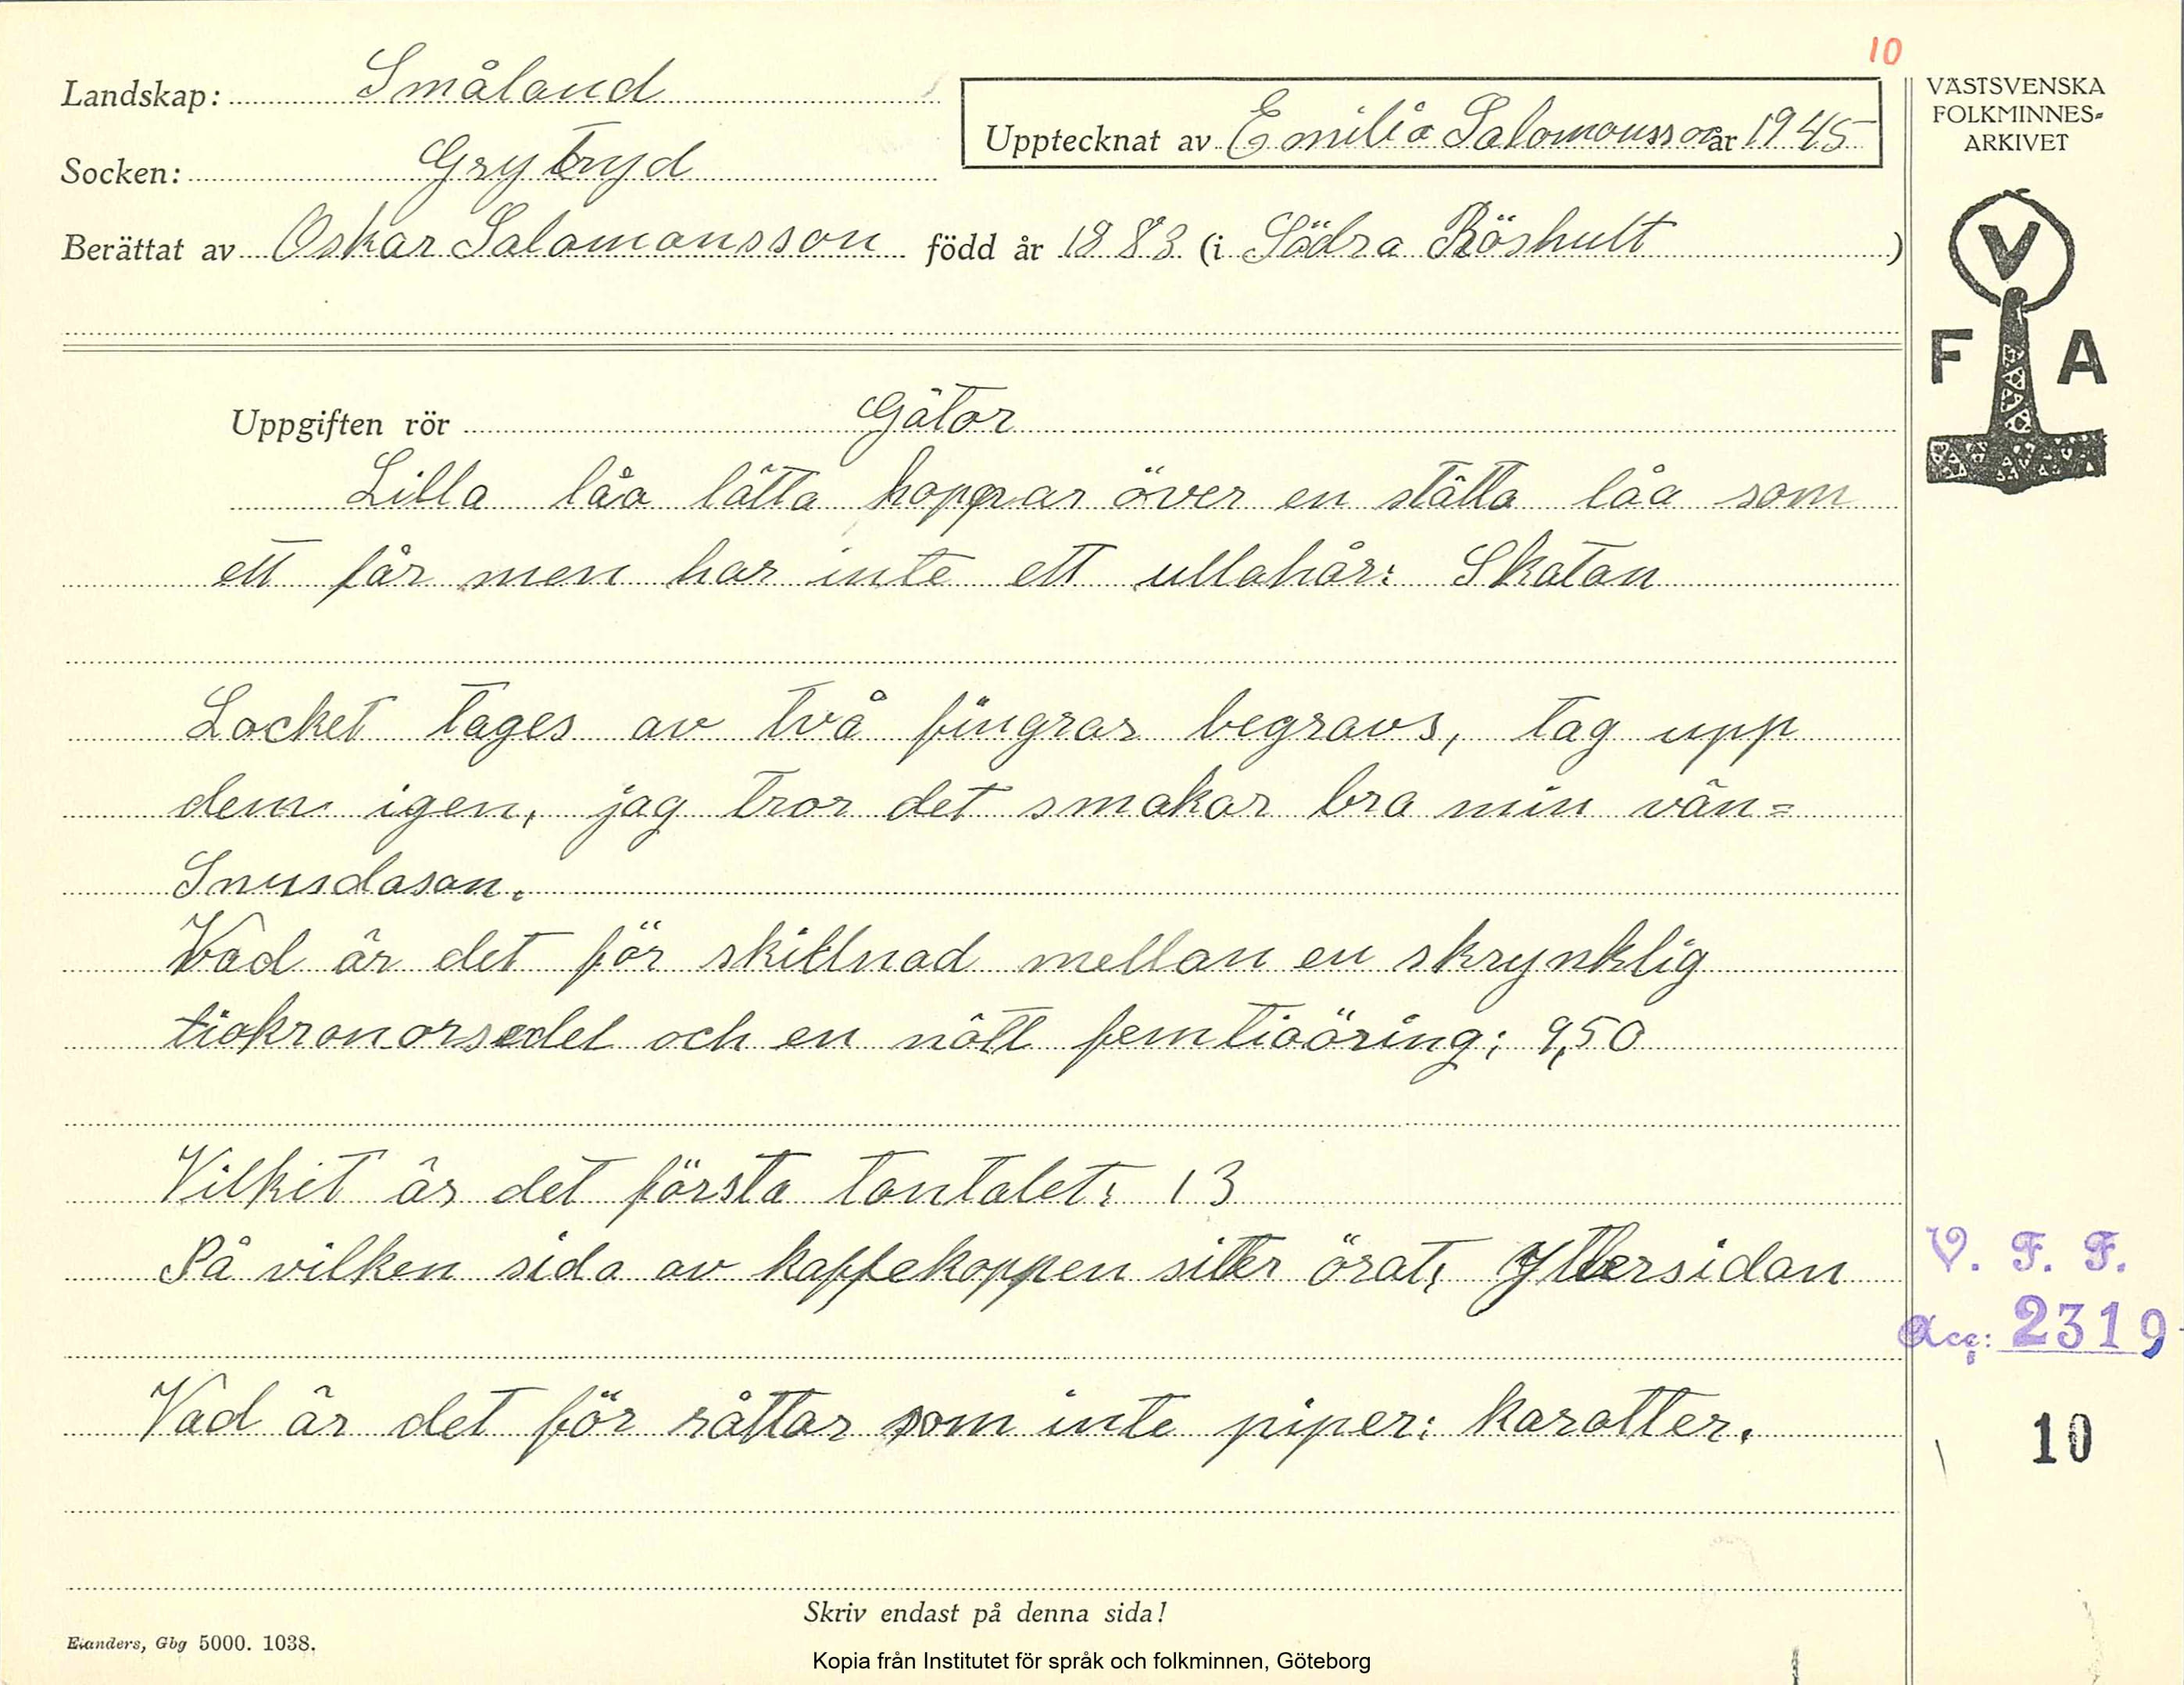 10
Landskap: Småland
Upptecknat av Emilia Salomonsson år 1945
VÄSTSVENSKA
FOLKMINNES-
ARKIVET
Socken: Grytryd
Berättat av Oskar Salomonsson född år 1883 (i Södra Röshult )
V
F A
Uppgiften rör Gåtor
Lilla låa låtta hoppar över en stätta låa som
ett får men har inte ett ullahår: Skatan
Locket tages av två fingrar begravs, tag upp
dem igen, jag tror det smakar bra min vän=
Snusdosan.
Vad är det för skillnad mellan en skrynklig
tiokronorsedel och en nött femtioöring; 9,50
Vilkit är det första tontalet: 13
På vilken sida av kaffekoppen sitter örat: Yttersidan
V. F. F.
Acc: 2319
Vad är det för råttar som inte piper: karotter.
10
Skriv endast på denna sida!
Elanders, Gbg 5000. 1038.
Kopia från Institutet för språk och folkminnen, Göteborg